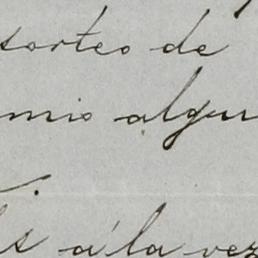 sorteo de
mio algu
á la vez